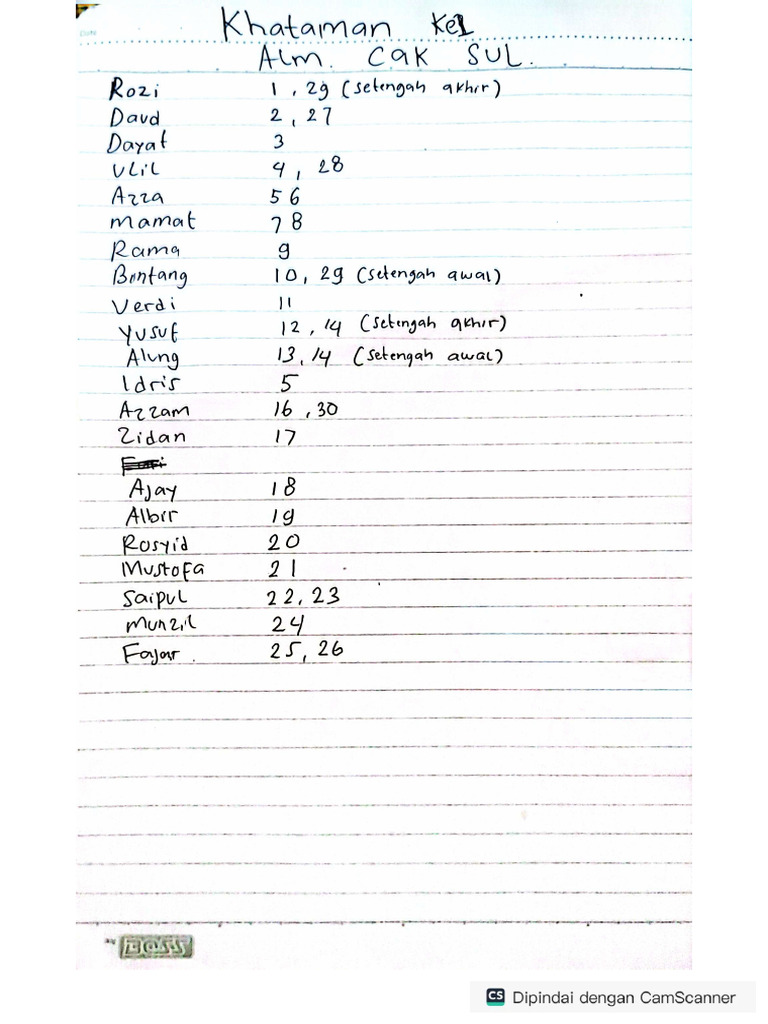 Khataman Kel
Alm. Cak Sul.
Rozi 1, 29 (setengah akhir)
Daud 2, 27
Dayat 3
Ulil 4, 28
Azza 5 6
Mamat 7 8
Rama 9
Bintang 10, 29 (setengah awal)
Verdi 11
Yusuf 12, 14 (setengah akhir)
Alung 13, 14 (setengah awal)
Idris 5
Azzam 16, 30
Zidan 17
Ajay 18
Albir 19
Rosyid 20
Mustofa 21
Saipul 22, 23
Munzil 24
Fajar. 25, 26
BOSS
CS Dipindai dengan CamScanner